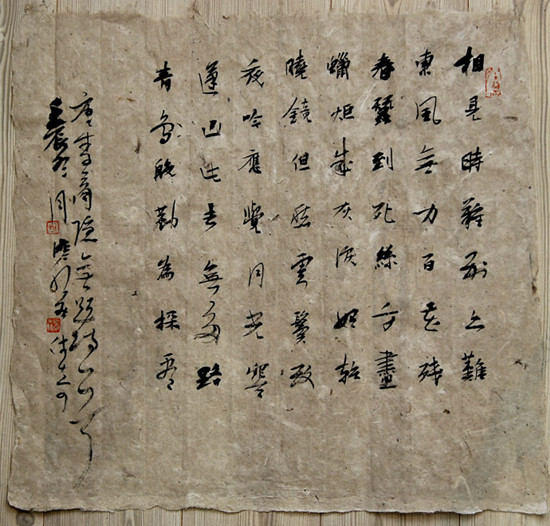 相見時難別亦難
東風無力百花残
春蠶到死絲方盡
蠟炬成灰淚始乾
曉鏡但愁雲鬢改
夜吟應覺月光寒
蓬山此去無多路
青鳥殷勤為探看
唐李商隐無題詩一首
壬辰冬月